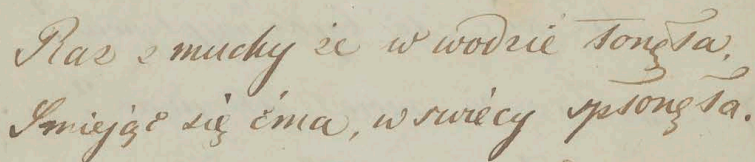 Raz z muchy że w wodzie tonęła,
Smiejąc się ćma, w swiécy spłonęła.